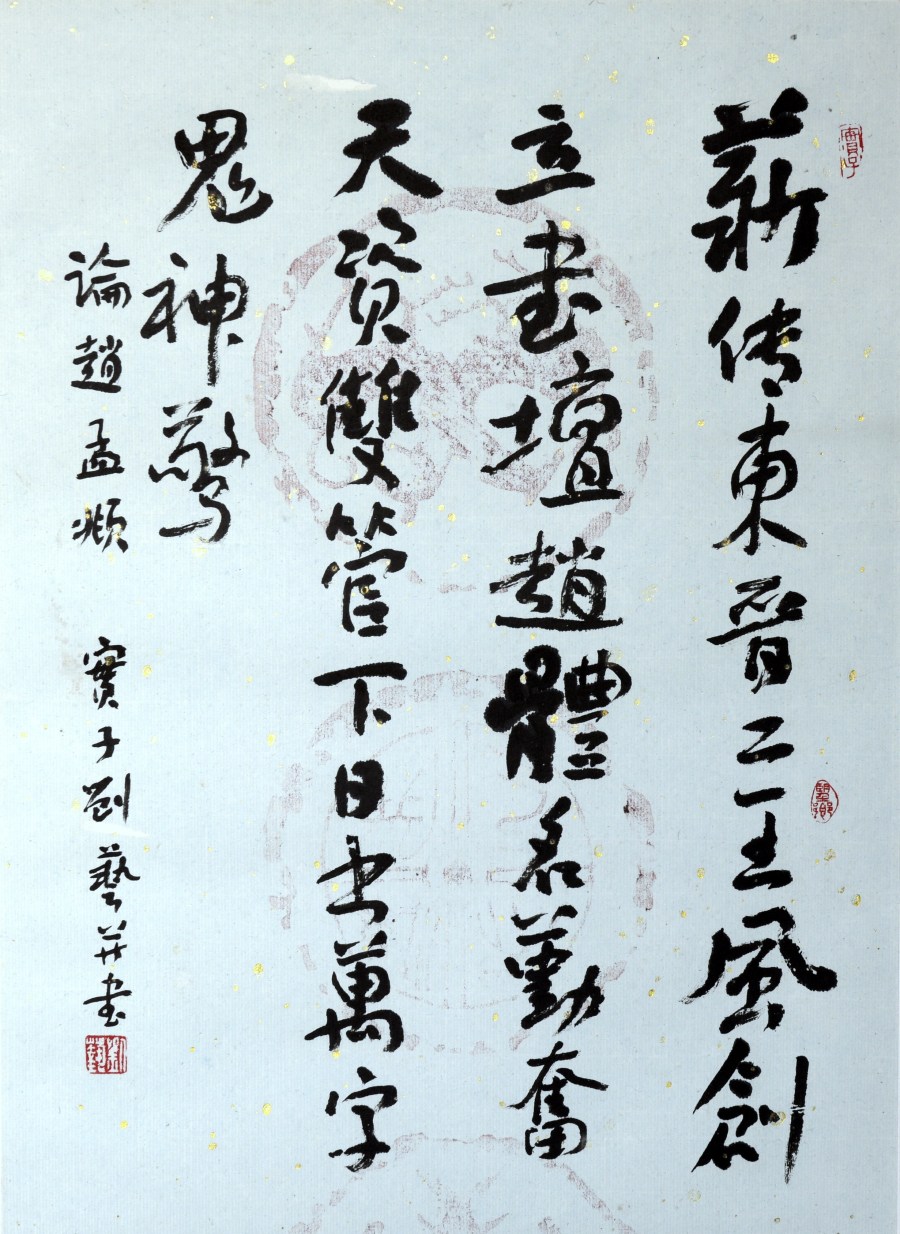 薪传東晉二王風創
立書壇趙體名勤奮
天資雙管下日书萬字
鬼神驚
論趙孟頫
實子劉藝并書
實子
劉藝